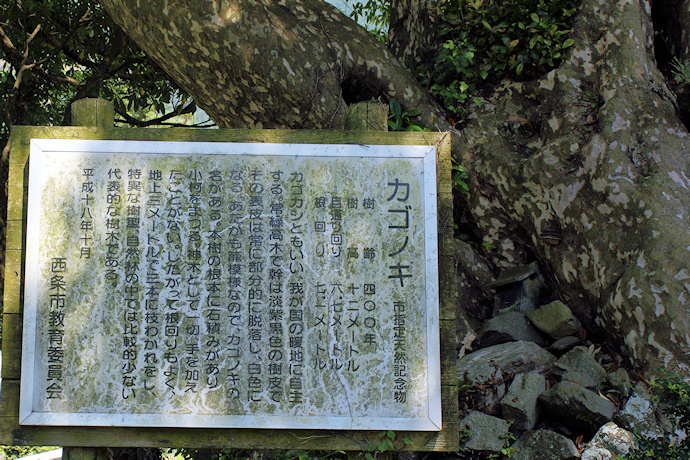 カゴノキ 市指定天然記念物
樹齢 四〇〇年
樹高 十二メートル
目通り回り 六・七メートル
根回り 七・二メートル
カゴカシともいい、我が国の暖地に自生
する常緑高木で幹は淡紫黒色の樹皮で
その表皮は常に部分的に脱落し、白色に
なる。あたかも鹿模様なので、カゴノキの
名がある。本樹の根本に石積みがあり
小祠をまつる。神木として一切手を加え
たことがない。したがって根回りもよく、
地上三メートルで三本に枝わかれをし、
特異な樹観自然林の中では比較的少ない
代表的な樹木である。
平成十八年十月
西条市教育委員会